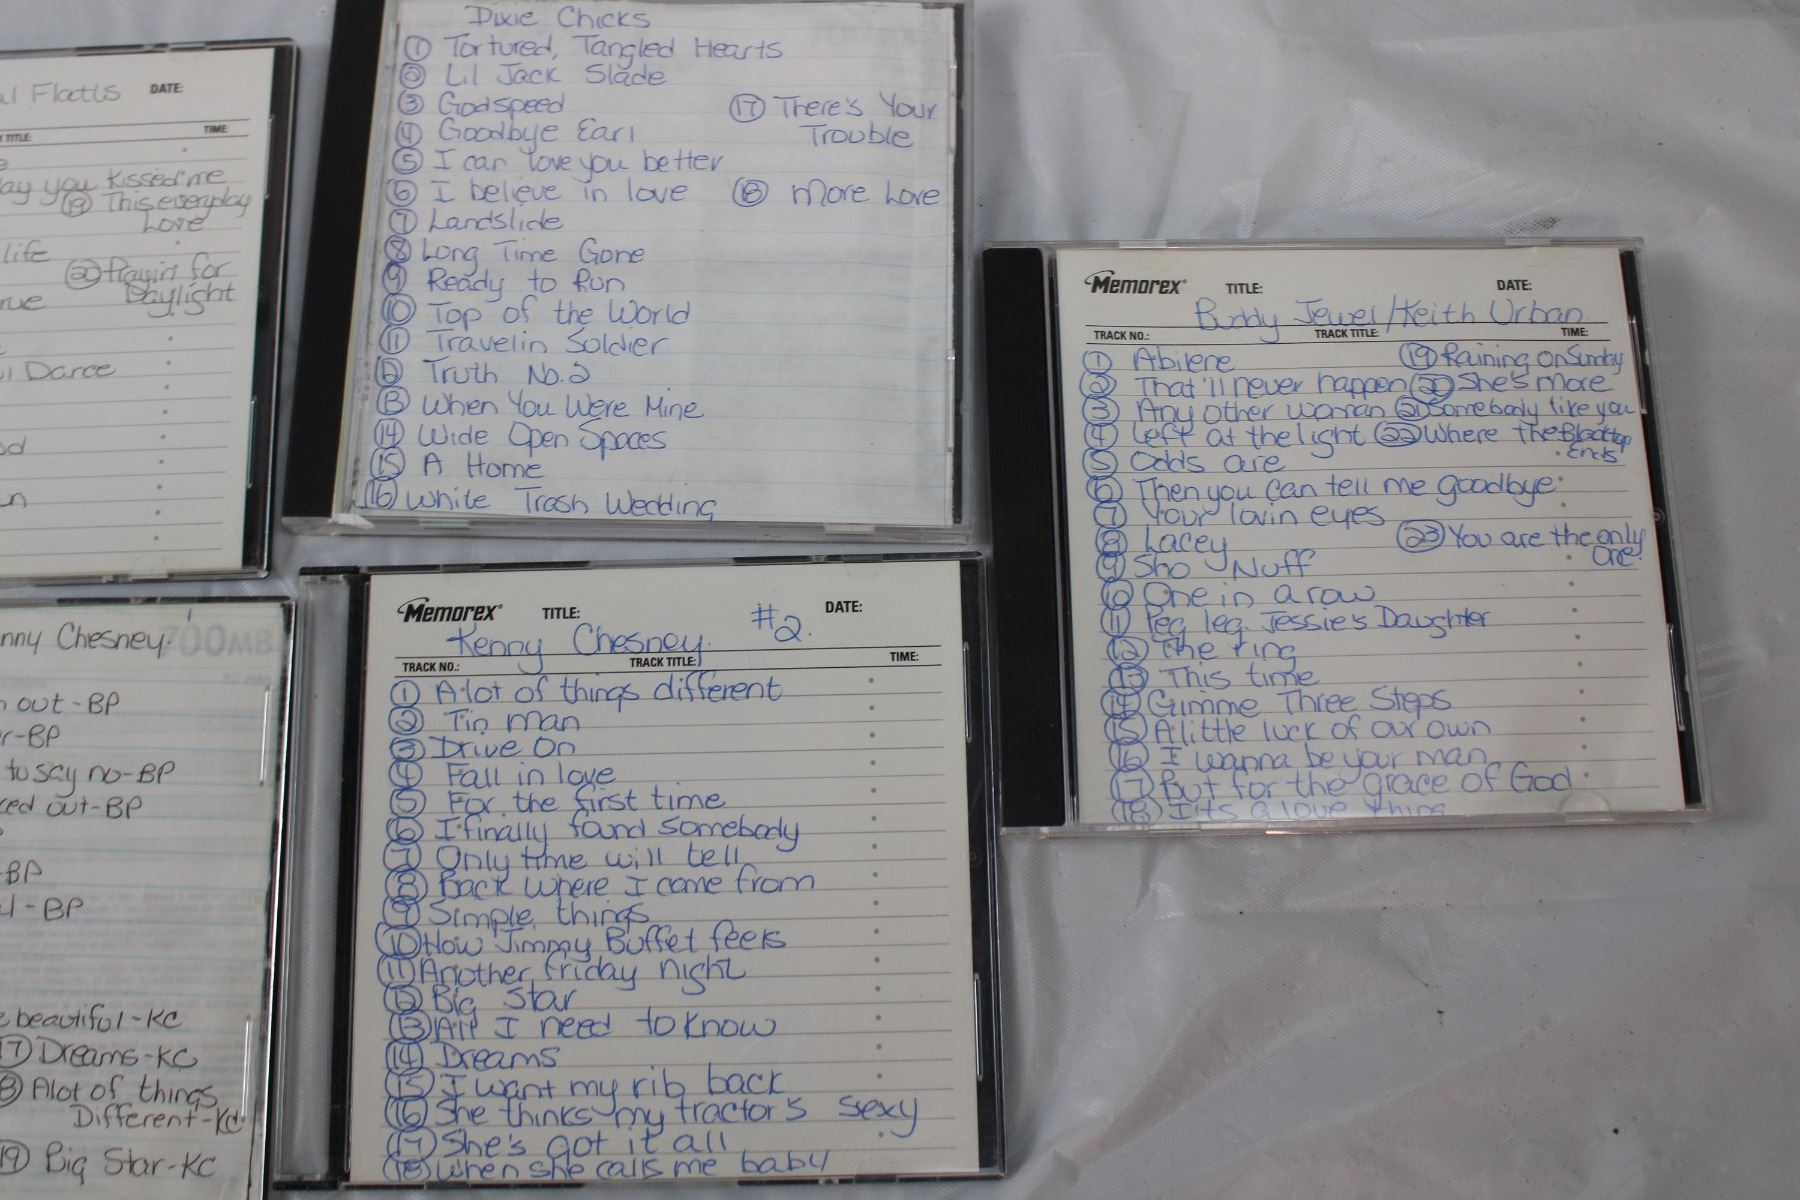 Flatts DATE:
TITLE: TIME:
you Kissed me
19 This everyday
Love
life
20 Prayin for
Daylight
Dance
Dixie Chicks
1 Tortured, Tangled Hearts
2 Lil Jack Slade
3 Godspeed
4 Goodbye Earl
5 I can love you better
6 I believe in love
7 Landslide
8 Long Time Gone
9 Ready to Run
10 Top of the World
11 Travelin Soldier
12 Truth No.2
13 When You Were Mine
14 Wide Open Spaces
15 A Home
16 White Trash Wedding
17 There's Your
Trouble
18 More Love
Memorex® TITLE: DATE:
Buddy Jewel/Keith Urban
TRACK NO.: TRACK TITLE: TIME:
1 Abilene
2 That'll never happen
3 Any other woman
4 Left at the light
5 Odds are
6 Then you can tell me goodbye
7 Your lovin eyes
8 Lacey
9 Sho Nuff
10 One in a row
11 Peg leg Jessie's Daughter
12 The ring
13 This time
14 Gimme Three Steps
15 A little luck of our own
16 I wanna be your man
17 But for the grace of God
18 It's a love thing
19 Raining on Sunday
20 She's more
21 Somebody like you
22 Where the Blacktop
Ends
23 You are the only
one
Chesney
700MB
out-BP
-BP
to say no-BP
out-BP
-BP
-BP
beautiful-KC
17 Dreams-KC
18 Alot of things
Different-KC
19 Big Star-KC
Memorex® TITLE: #2. DATE:
Kenny Chesney
TRACK NO.: TRACK TITLE: TIME:
1 A lot of things different
2 Tin man
3 Drive On
4 Fall in love
5 For the first time
6 I finally found somebody
7 Only time will tell
8 Back where I come from
9 Simple things
10 How Jimmy Buffet feels
11 Another friday night
12 Big Star
13 All I need to know
14 Dreams
15 I want my rib back
16 She thinks my tractor's sexy
17 She's got it all
18 When she calls me baby